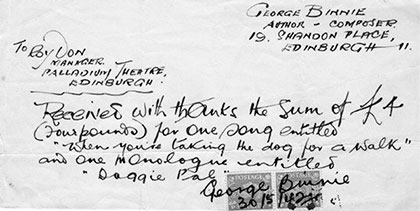 George Binnie
Author - Composer
19. Shandon Place,
Edinburgh 11.
To Roy Don
Manager
Palladium Theatre,
Edinburgh
Received with thanks the sum of £4
(four pounds) for one song entitled
"When you're taking the dog for a walk"
and one monologue entitled
"Doggie Pal"
George Binnie
30/5/42